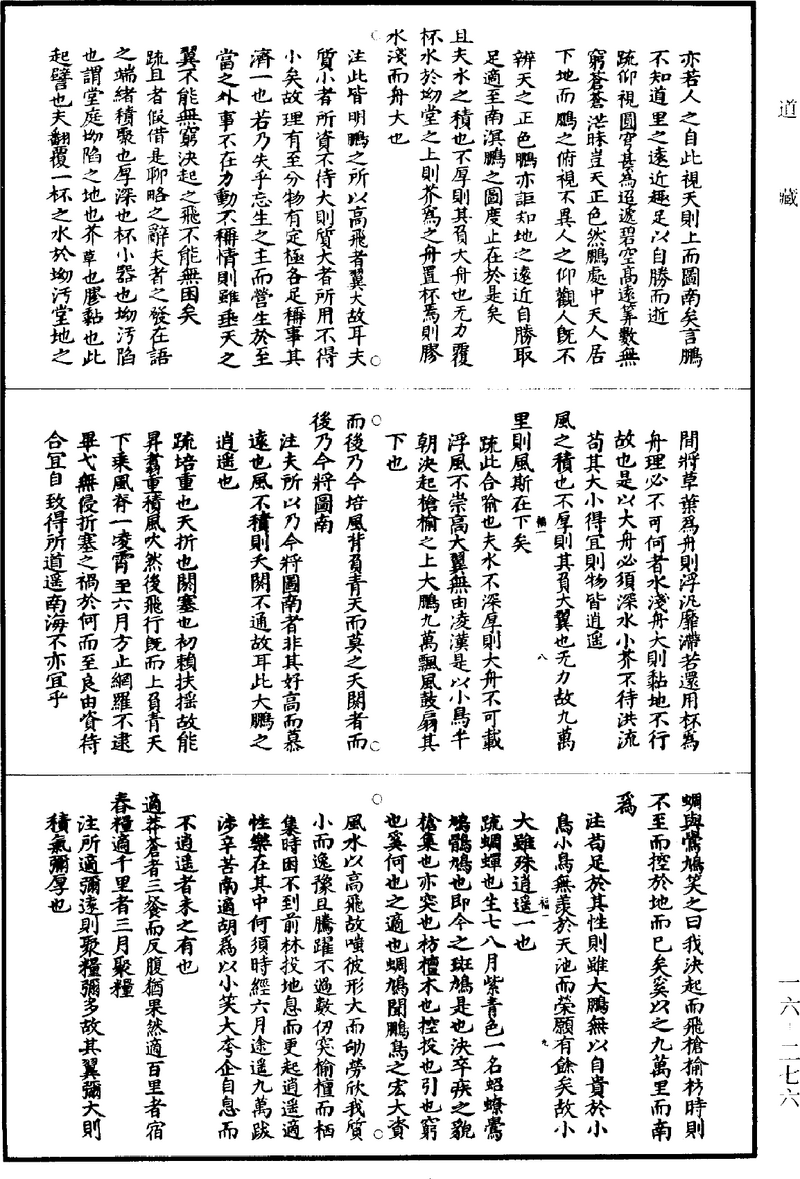 道藏
亦若人之自此視天則上而圖南矣言鵬
不知道里之遠近趣足以自勝而逝
疏仰視圓穹甚為迢遞碧空高遠筭數無
窮蒼蒼茫昧豈天正色然鵬處中天人居
下地而鵬之俯視不異人之仰觀人既不
辨天之正色鵬亦詎知地之遠近自勝取
足適至南溟鵬之圖度止在於是矣
且夫水之積也不厚則其負大舟也无力覆
杯水於坳堂之上則芥為之舟置杯焉則膠
水淺而舟大也
注此皆明鵬之所以高飛者翼大故耳夫
質小者所資不待大則質大者所用不得
小矣故理有至分物有定極各足稱事其
濟一也若乃失乎忘生之主而營生於至
當之外事不在力動不稱情則雖垂天之
翼不能無窮決起之飛不能無困矣
疏且者假借是聊略之辭夫者之發在語
之端緒積聚也厚深也杯小器也坳污陷
也謂堂庭坳陷之地也芥草也膠黏也此
起譬也夫翻覆一杯之水於坳污堂地之
間將草葉為舟則浮汎靡滯若還用杯為
舟理必不可何者水淺舟大則黏地不行
故也是以大舟必須深水小芥不待洪流
苟其大小得宜則物皆逍遥
風之積也不厚則其負大翼也无力故九萬
里則風斯在下矣
福一
八
疏此合喻也夫水不深厚則大舟不可載
浮風不崇高大翼無由凌漢是以小鳥半
朝決起槍榆之上大鵬九萬飄風鼓扇其
下也
而後乃今培風背負青天而莫之夭閼者而
後乃今將圖南
注夫所以乃今將圖南者非其好高而慕
遠也風不積則夭閼不通故耳此大鵬之
逍遥也
疏培重也夭折也閼塞也初賴扶揺故能
昇翥重積風吹然後飛行既而上負青天
下乘風脊一凌霄至六月方止網羅不逮
畢弋無侵折塞之禍於何而至良由資待
合宜自致得所逍遥南海不亦宜乎
蜩與鷽鳩笑之曰我決起而飛槍榆枋時則
不至而控於地而已矣奚以之九萬里而南
為
注苟足於其性則雖大鵬無以自貴於小
鳥小鳥無羨於天池而榮願有餘矣故小
大雖殊逍遥一也
福一
九
疏蜩蟬也生七八月紫青色一名蛁蟟鷽
鳩鶻鳩也即今之斑鳩是也決卒疾之貌
槍集也亦突也枋檀木也控投也引也窮
也奚何也之適也蜩鳩聞鵬鳥之宏大資
風水以高飛故嗤彼形大而劬勞欣我質
小而逸豫且騰躍不過數仞突榆檀而栖
集時困不到前林投地息而更起逍遥適
性樂在其中何須時經六月途遥九萬跋
涉辛苦南適胡為以小笑大夸企自息而
不逍遥者未之有也
適莽蒼者三飡而反腹猶果然適百里者宿
舂糧適千里者三月聚糧
注所適彌遠則聚糧彌多故其翼彌大則
積氣彌厚也
一六－二七六